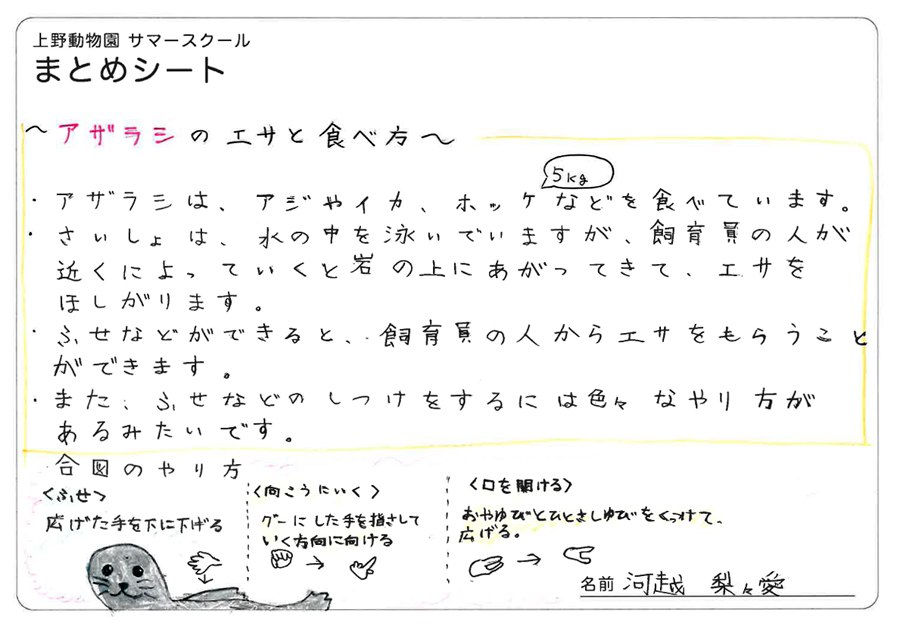 上野動物園 サマースクール
まとめシート
～アザラシのエサと食べ方～
5kg
・アザラシは、アジやイカ、ホッケなどを食べています。
・さいしょは、水の中を泳いでいますが、飼育員の人が
近くによっていくと岩の上にあがってきて、エサを
ほしがります。
・ふせなどができると、飼育員の人からエサをもらうこと
ができます。
・また、ふせなどのしつけをするには色々なやり方が
あるみたいです。
合図のやり方
<ふせ>
広げた手を下に下げる
<向こうにいく>
グーにした手を指さして
いく方向に向ける
<口を開ける>
おやゆびとひとさしゆびをくっつけて、
広げる。
名前 河越 梨々愛